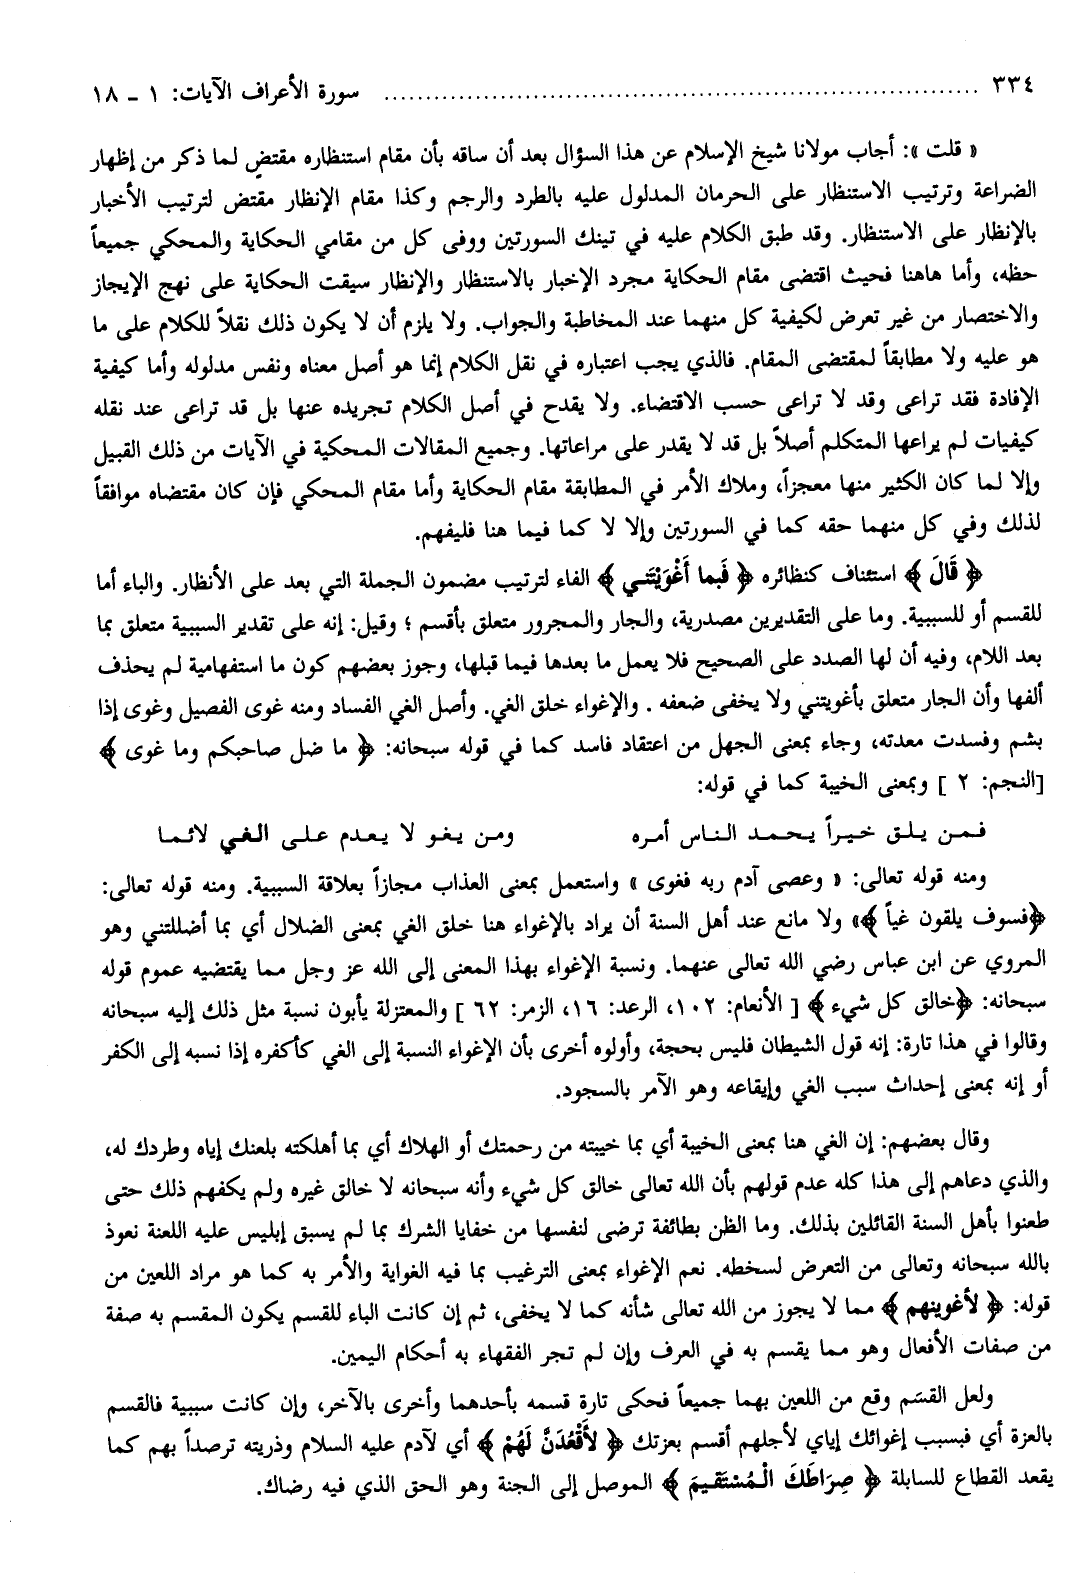 ٣٣٤ ........................................................................ سورة الأعراف الآيات: ١ ـ ١٨
« قلت »: أجاب مولانا شيخ الإسلام عن هذا السؤال بعد أن ساقه بأن مقام استنظاره مقتضٍ لما ذكر من إظهار
الضراعة وترتيب الاستنظار على الحرمان المدلول عليه بالطرد والرجم وكذا مقام الإنظار مقتض لترتيب الأخبار
بالإنظار على الاستنظار. وقد طبق الكلام عليه في تينك السورتين ووفى كل من مقامي الحكاية والمحكي جميعاً
حظه، وأما هاهنا فحيث اقتضى مقام الحكاية مجرد الإخبار بالاستنظار والإنظار سيقت الحكاية على نهج الإيجاز
والاختصار من غير تعرض لكيفية كل منهما عند المخاطبة والجواب. ولا يلزم أن لا يكون ذلك نقلاً للكلام على ما
هو عليه ولا مطابقاً لمقتضى المقام. فالذي يجب اعتباره في نقل الكلام إنما هو أصل معناه ونفس مدلوله وأما كيفية
الإفادة فقد تراعى وقد لا تراعى حسب الاقتضاء. ولا يقدح في أصل الكلام تجريده عنها بل قد تراعى عند نقله
كيفيات لم يراعها المتكلم أصلاً بل قد لا يقدر على مراعاتها. وجميع المقالات المحكية في الآيات من ذلك القبيل
وإلا لما كان الكثير منها معجزاً، وملاك الأمر في المطابقة مقام الحكاية وأما مقام المحكي فإن كان مقتضاه موافقاً
لذلك وفي كل منهما حقه كما في السورتين وإلا لا كما فيما هنا فليفهم.
﴿ قَالَ ﴾ استئناف كنظائره ﴿ فَبما أَغْوَيْتَني ﴾ الفاء لترتيب مضمون الجملة التي بعد على الأنظار. والباء أما
للقسم أو للسببية. وما على التقديرين مصدرية، والجار والمجرور متعلق بأقسم ؛ وقيل: إنه على تقدير السببية متعلق بما
بعد اللام، وفيه أن لها الصدد على الصحيح فلا يعمل ما بعدها فيما قبلها، وجوز بعضهم كون ما استفهامية لم يحذف
ألفها وأن الجار متعلق بأغويتني ولا يخفى ضعفه . والإغواء خلق الغي. وأصل الغي الفساد ومنه غوى الفصيل وغوى إذا
بشم وفسدت معدته، وجاء بمعنى الجهل من اعتقاد فاسد كما في قوله سبحانه: ﴿ ما ضل صاحبكم وما غوى ﴾
[النجم: ٢ ] وبمعنى الخيبة كما في قوله:
فمن يلق خيراً يحمد الناس أمره ومن يغو لا يعدم على الغي لائما
ومنه قوله تعالى: « وعصى آدم ربه فغوى » واستعمل بمعنى العذاب مجازاً بعلاقة السببية. ومنه قوله تعالى:
﴿فسوف يلقون غياً ﴾» ولا مانع عند أهل السنة أن يراد بالإغواء هنا خلق الغي بمعنى الضلال أي بما أضللتني وهو
المروي عن ابن عباس رضي الله تعالى عنهما. ونسبة الإغواء بهذا المعنى إلى الله عز وجل مما يقتضيه عموم قوله
سبحانه: ﴿خالق كل شيء ﴾ [ الأنعام: ١٠٢، الرعد: ١٦، الزمر: ٦٢ ] والمعتزلة يأبون نسبة مثل ذلك إليه سبحانه
وقالوا في هذا تارة: إنه قول الشيطان فليس بحجة، وأولوه أخرى بأن الإغواء النسبة إلى الغي كأكفره إذا نسبه إلى الكفر
أو إنه بمعنى إحداث سبب الغي وإيقاعه وهو الآمر بالسجود.
وقال بعضهم: إن الغي هنا بمعنى الخيبة أي بما خيبته من رحمتك أو الهلاك أي بما أهلكته بلعنك إياه وطردك له،
والذي دعاهم إلى هذا كله عدم قولهم بأن الله تعالى خالق كل شيء وأنه سبحانه لا خالق غيره ولم يكفهم ذلك حتى
طعنوا بأهل السنة القائلين بذلك. وما الظن بطائفة ترضى لنفسها من خفايا الشرك بما لم يسبق إبليس عليه اللعنة نعوذ
بالله سبحانه وتعالى من التعرض لسخطه. نعم الإغواء بمعنى الترغيب بما فيه الغواية والأمر به كما هو مراد اللعين من
قوله: ﴿ لأغوينهم ﴾ مما لا يجوز من الله تعالى شأنه كما لا يخفى، ثم إن كانت الباء للقسم يكون المقسم به صفة
من صفات الأفعال وهو مما يقسم به في العرف وإن لم تجر الفقهاء به أحكام اليمين.
ولعل القسَم وقع من اللعين بهما جميعاً فحكى تارة قسمه بأحدهما وأخرى بالآخر، وإن كانت سببية فالقسم
بالعزة أي فبسبب إغوائك إياي لأجلهم أقسم بعزتك ﴿ لأَقْعُدَنَّ لَهُمْ ﴾ أي لآدم عليه السلام وذريته ترصداً بهم كما
يقعد القطاع للسابلة ﴿ صِرَاطَكَ الْمُسْتَقيمَ ﴾ الموصل إلى الجنة وهو الحق الذي فيه رضاك.